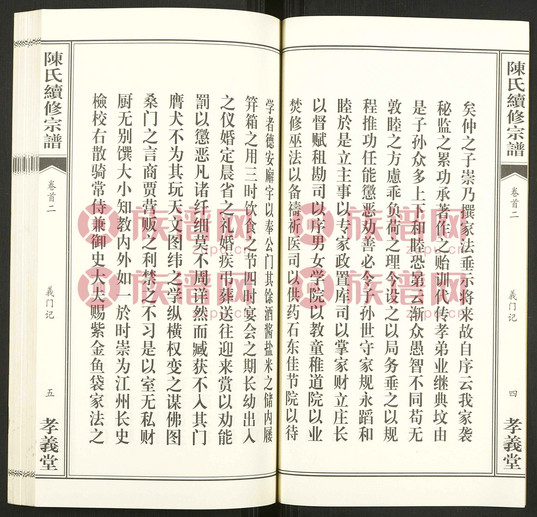 陳氏續修宗譜
卷首二
義门记
四
孝義堂
矣仲之子崇乃撰家法垂示将来故自序云我家袭
秘监之累功承著作之贻训代传孝弟业继典坟由
是子孙众多上下和睦恐弟云渐众愚智不同苟无
敦睦之方虑乖负荷之理今设之以局务垂之以规
程推功任能惩恶劝善必令子孙世守家规永蹈和
睦於是立主事以专家政置库司以掌家财立庄长
以督赋租勘司以序男女学院以教童稚道院以业
焚修巫法以备祷祈医司以供药石东佳节院以待
学者德安廟宇以奉公门其馀酒酱盐米之储内屦
笄箱之用三时饮食之节四时宴会之期长幼出入
之仪婚定晨省之礼婚疾弔葬送往迎来赏以劝能
罰以惩恶凡诸纤细莫不周详然而臧获不入其门
膺犬不为其玩天文图纬之学纵横权变之谋佛图
桑门之言商贾营贩之利禁之不习是以室无私财
厨无别馔大小知教内外如一於时崇为江州长史
檢校右散骑常侍兼御史大夫赐紫金鱼袋家法之
陳氏續修宗譜
卷首二
義门记
五
孝義堂
族谱网
zupu.cn